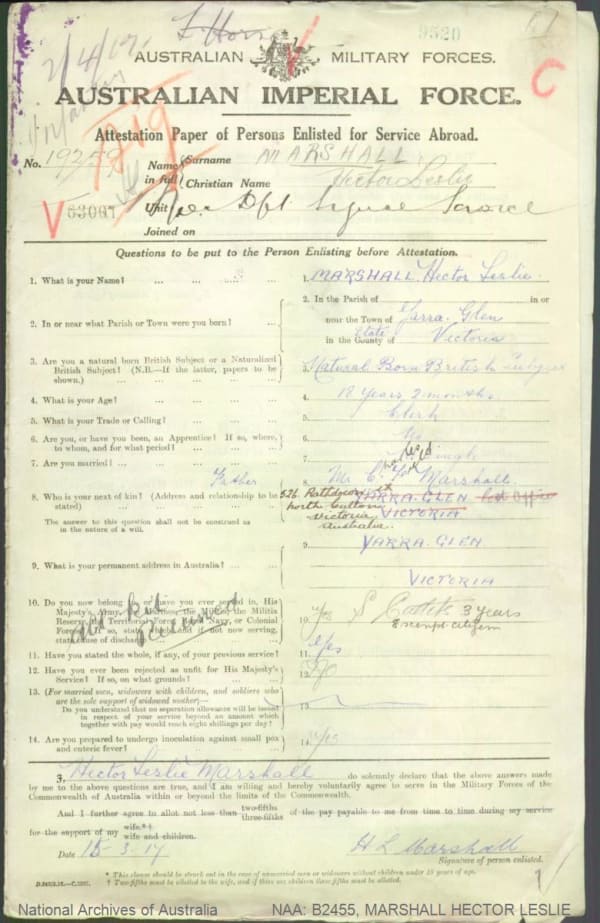 9520
2/4/17
AUSTRALIAN MILITARY FORCES.
C
AUSTRALIAN IMPERIAL FORCE.
Attestation Paper of Persons Enlisted for Service Abroad.
No. 19259
Name in full { Surname MARSHALL
Christian Name Hector Leslie
V 53097
Unit
Joined on
Questions to be put to the Person Enlisting before Attestation.
1. What is your Name? ... 1. MARSHALL. Hector Leslie.
2. In or near what Parish or Town were you born? ... 2. In the Parish of in or
near the Town of Yarra. Glen
State
in the County of Victoria
3. Are you a natural born British Subject or a Naturalized 3. Natural Born British Subject
British Subject? (N.B.—If the latter, papers to be
shown.)
4. What is your Age? 4. 18 years. 2 months.
5. What is your Trade or Calling? 5. Clerk
6. Are you, or have you been, an Apprentice? If so, where, 6. No
to whom, and for what period?
7. Are you married? 7. Single
Father
8. Who is your next of kin? (Address and relationship to be 8. Mr Marshall.
stated) 526 YARRA. GLEN Post Office
North VICTORIA
Victoria
Australia.
The answer to this question shall not be construed as
in the nature of a will.
9. What is your permanent address in Australia? 9. YARRA. GLEN
VICTORIA
10. Do you now belong to, or have you ever served in, His 10. Yes S Cadets 3 years
Majesty's Army, the Marines, the Militia Exempt citizen
Reserve, the Territorial Force, Royal Navy, or Colonial
Forces? If so, state which, and if not now serving,
state cause of discharge
11. Have you stated the whole, if any, of your previous service? 11. Yes
12. Have you ever been rejected as unfit for His Majesty's 12. No
Service? If so, on what grounds?
13. (For married men, widowers with children, and soldiers who 13.
are the sole support of widowed mother)—
Do you understand that no separation allowance will be issued
in respect of your service beyond an amount which
together with pay would reach eight shillings per day?
14. Are you prepared to undergo inoculation against small pox 14. Yes
and enteric fever?
I, Hector Leslie Marshall do solemnly declare that the above answers made
by me to the above questions are true, and I am willing and hereby voluntarily agree to serve in the Military Forces of the
Commonwealth of Australia within or beyond the limits of the Commonwealth.
And I further agree to allot not less than two-fifths three-fifths of the pay payable to me from time to time during my service
for the support of my wife.*† wife and children.
Date 15-3-17 H L Marshall
Signature of person enlisted.
* This clause should be struck out in the case of unmarried men or widowers without children under 18 years of age.
† Two-fifths must be allotted to the wife, and if there are children three-fifths must be allotted.
National Archives of Australia NAA: B2455, MARSHALL HECTOR LESLIE